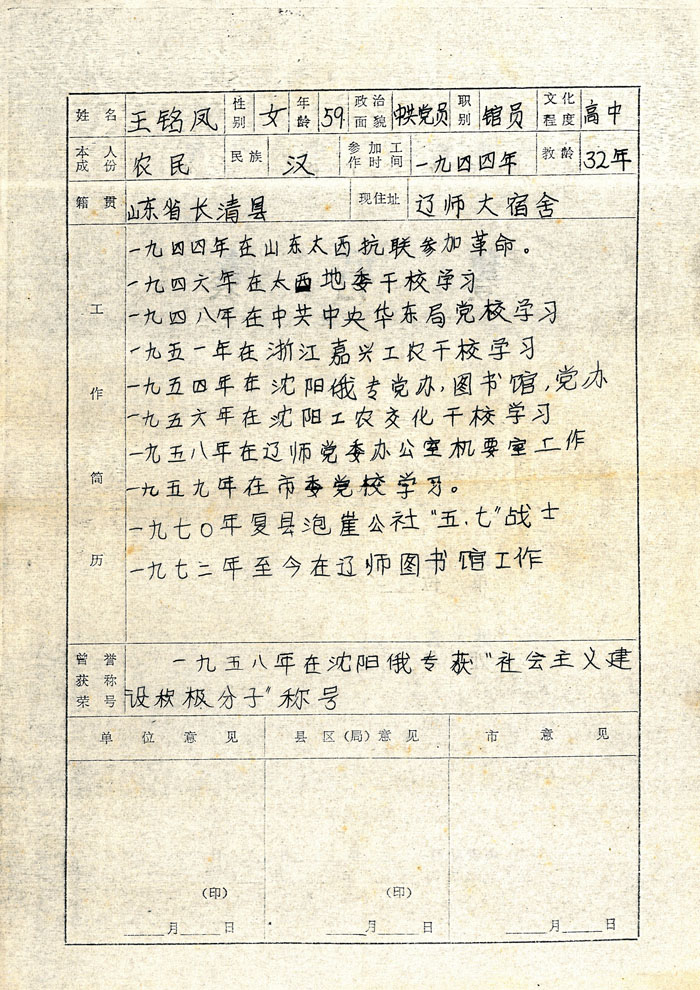 姓名 王铭凤 性别 女 年龄 59 政治面貌 中共党员 职别 馆员 文化程度 高中
本人成份 农民 民族 汉 参加工作时间 一九四四年 教龄 32年
籍贯 山东省长清县 现住址 辽师大宿舍
工作简历
一九四四年在山东太西抗联参加革命。
一九四六年在太西地委干校学习
一九四八年在中共中央华东局党校学习
一九五一年在浙江嘉兴工农干校学习
一九五四年在沈阳俄专党办,图书馆,党办
一九五六年在沈阳工农文化干校学习
一九五八年在辽师党委办公室机要室工作
一九五九年在市委党校学习。
一九七〇年复县泡崖公社“五.七”战士
一九七二年至今在辽师图书馆工作
曾获荣誉称号
一九五八年在沈阳俄专获“社会主义建
设积极分子”称号
单位意见 县区(局)意见 市意见
(印) (印)
月 日 月 日 月 日